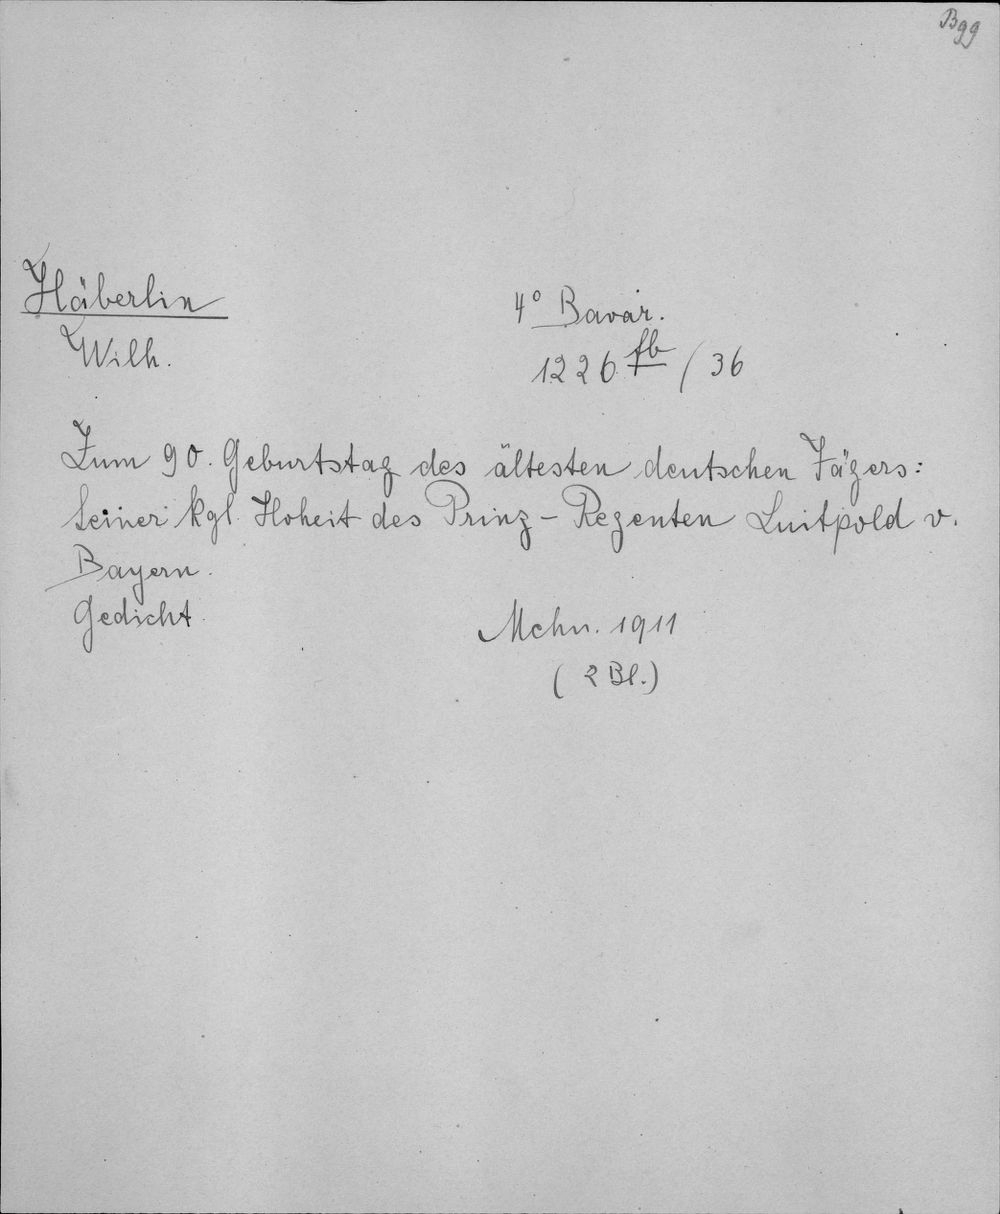 Bgg
Häberlin
4° Bavar.
Wilh.
1226 fb/36
Zum 90. Geburtstag des ältesten deutschen Jägers:
Seiner kgl. Hoheit des Prinz-Regenten Luitpold v.
Bayern.
Gedicht.
Mchn. 1911
(2 Bl.)